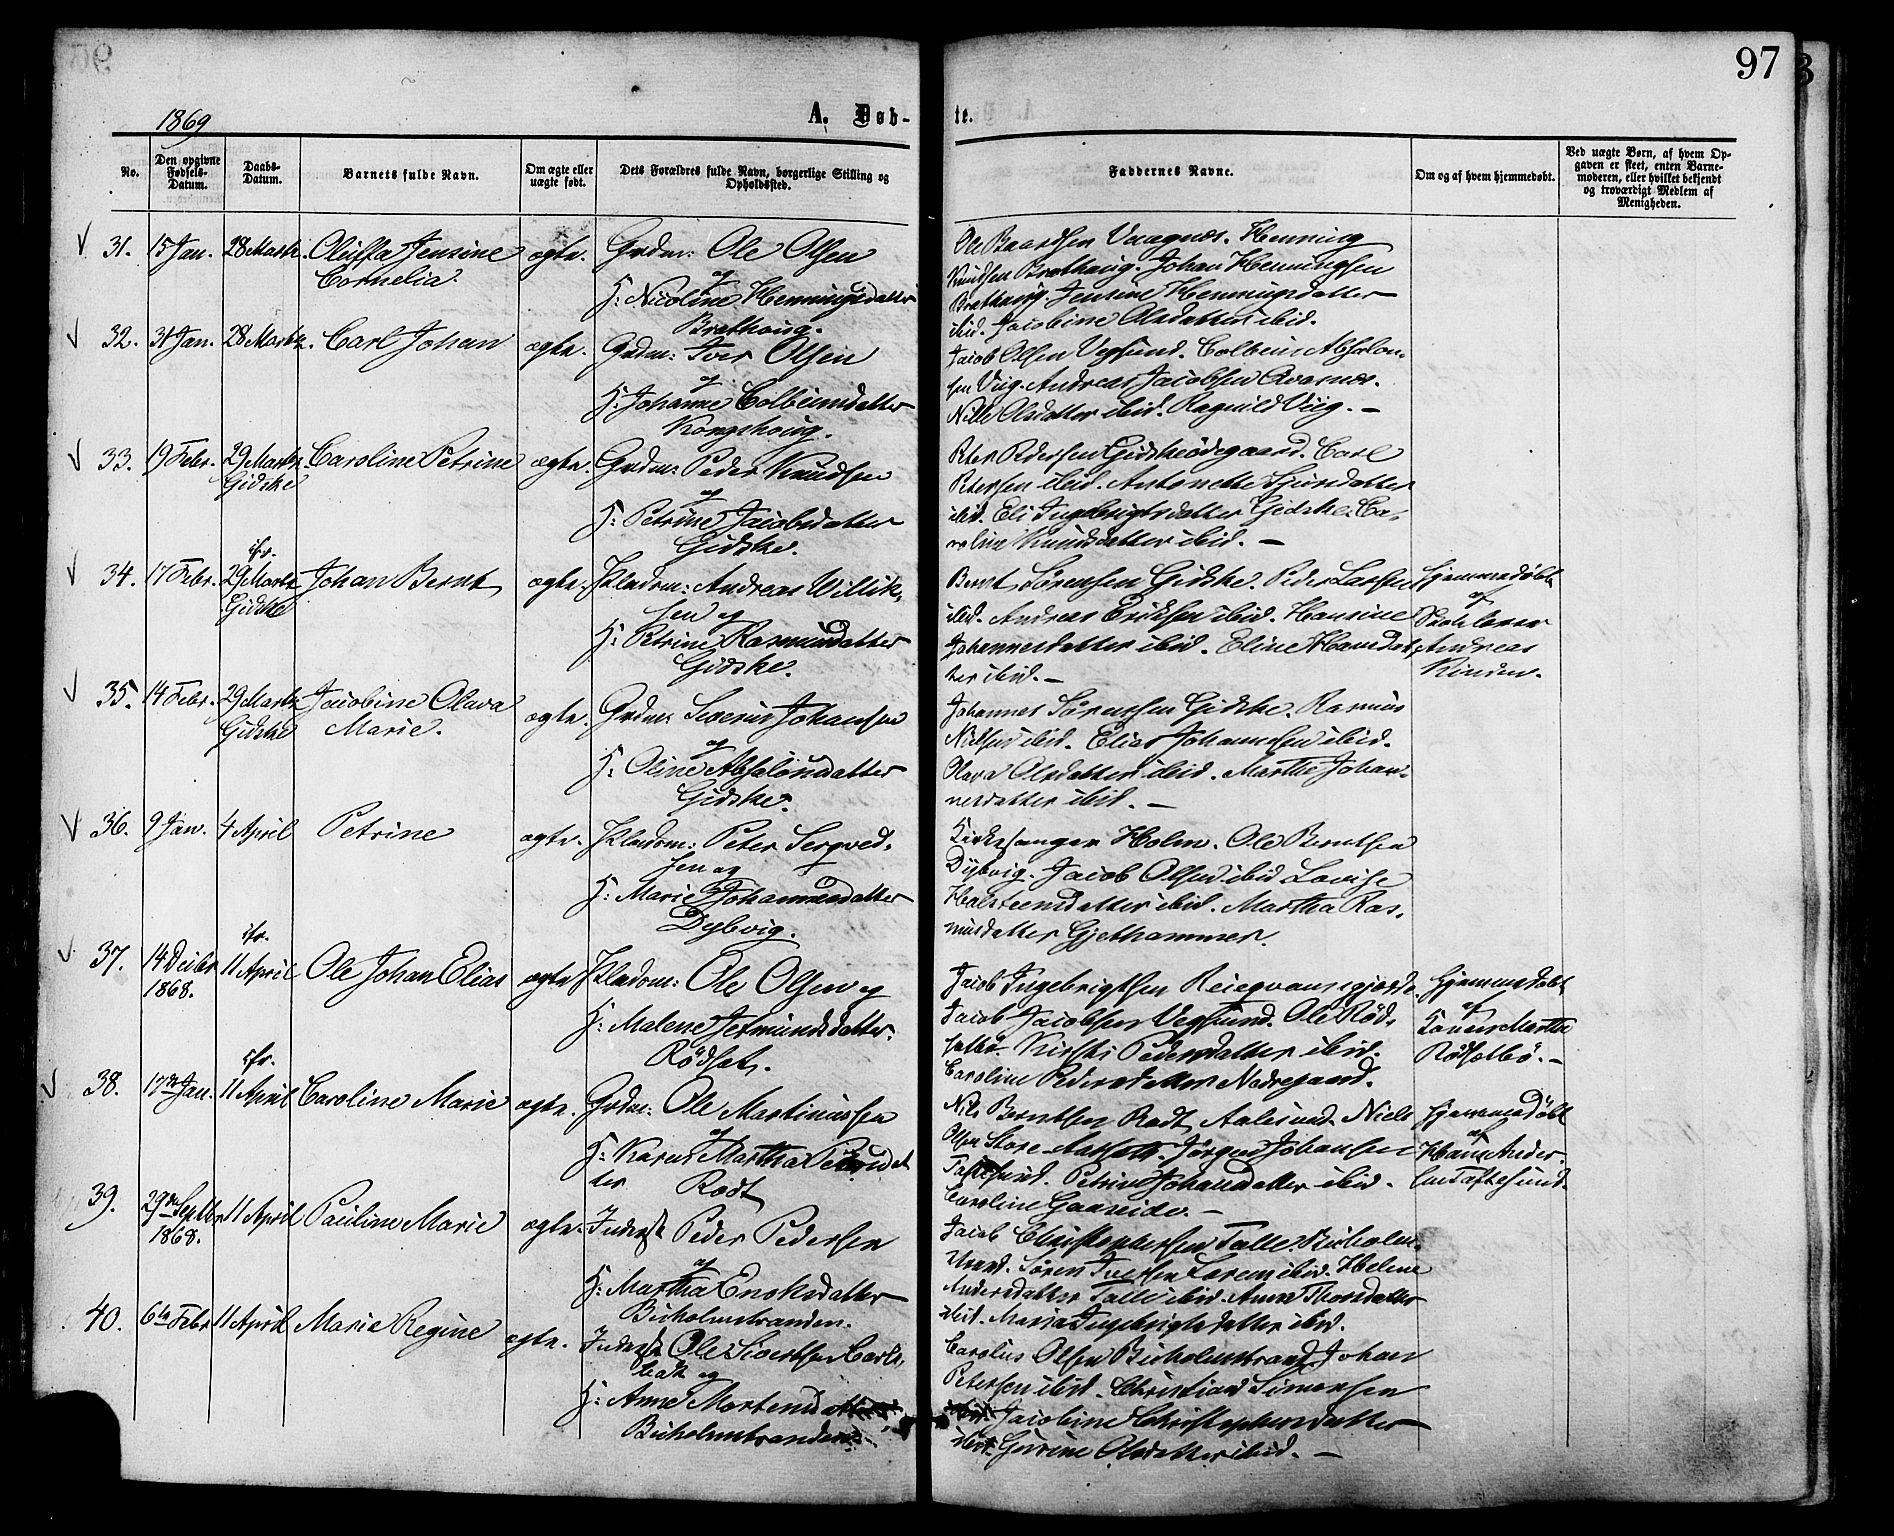 97
1869
A. Døb-
te.
No.
Den opgivne Fødsels-Datum.
Daabs-Datum.
Barnets fulde Navn.
Om ægte eller uægte født.
Dets Forældres fulde Navn, borgerlige Stilling og Opholdssted.
Faddernes Navne.
Om og af hvem hjemmedøbt.
Ved uægte Børn, af hvem Opgaven er skeet, enten Barnemoderen, eller hvilket bekjendt og troværdigt Medlem af Menigheden.
31. 15 Jan. 28 Marts. Oluffa Jensine ægte. Grdm: Ole Olsen
Cornelia. og
K: Nicoline Henningsdatter
Brathoug.
Ole Baardsen Henning
Knudsen Brathoug. Johan Henningsen
Brathoug. Jensine Henningsdatter
ibid. Jacobine Olsdatter ibid.
32. 31 Jan. 28 Marts. Carl Johan ægte. Grdm: Iver Olsen
og
K: Johanne Colbeinsdatter
Kongshoug.
Jacob Olsen Vegsund. Colbein Absalon-
sen Viig. Andreas Jacobsen
Olsdatter ibid. Ragnild Viig. –
33. 19 Febr. 29 Marts Caroline Petrine ægte. Grdm: Peder Knudsen
Gidske og
K: Petrine Jacobsdatter
Gidske.
Peter Pedersen Gidskeødegaard. Carl
Petersen ibid. Antonette
ibid. Eli Ingebrigtsdatter Gidske. Ca-
roline Knudsdatter ibid. –
34. 17 Febr. 29 Marts Johan Bernt ægte. Pladsm: Andreas Willik-
Gidske sen og
K: Petrine Rasmusdatter
Gidske.
Bernt Sørensen Gidske. Peder Larsen
ibid. Andreas Eriksen ibid. Hansine
Johannesdatter ibid. Eline Hansdat-
ter ibid. –
Hjemmedøbt
af
Skolelærer
Andreas
Rinden.
35. 14 Febr. 29 Marts Jacobine Olava ægte. Grdm: Siverin Johansen
Gidske Marie. og
K: Oline Absalonsdatter
Gidske.
Johannes Sørensen Gidske. Rasmus
Nielsen ibid. Elias Johannesen ibid.
Olava Olsdatter ibid. Marthe Johan-
nesdatter ibid. –
36. 9 Jan. 4 April Petrine ægte. Pladsm: Peter
sen og
K: Marie Johannesdatter
Dybvig.
Kirkesanger Holm. Ole Berntsen
Dybvig. Jacob Olsen ibid Lovise
Halsteensdatter ibid. Martha Ras-
musdatter Gjethammer.
37. 14 Decbr 11 April Ole Johan Elias ægte Pladsm: Ole Olsen og
1868.
K: Malene Jetmundsdatter.
Rødset.
Jacob Ingebrigtsen
Jacob Jacobsen Vegsund. Ole Rød-
setbø. Kirsti Pedersdatter ibid.
Caroline Pedersdatter
Hjemmedøbt
af
Konen Martha
Rødsetbø. –
38. 17de Jan. 11 April Caroline Marie ægte. Grdm: Ole Martinussen
og
K: Karen Martha Pedersdat-
ter Rodt
Nils Berntsen Rodt, Aalesund. Niels
Olsen Store Jørgen Johansen
Taftesund. Petrine Johansdatter ibid.
Caroline Gaaseide. –
Hjemmedøbt
af
Hans Ander-
sen Taftesund.
39. 29de Septbr 11 April Pauline Marie ægte. Inderst Peder Pedersen
1868. og
K: Martha Enoksdatter
Biholmstranden.
Jacob Christophersen Talle. Biholm-
strand. Søren Iversen ibid. Helene
Andersdatter Talle ibid. Anne Thorsdatter
ibid. Maria Ingebrigtsdatter ibid.
40. 6te Febr 11 April Marie Regine ægte. Inderst Ole Sivertsen
og
K: Anne Mortensdatter
Biholmstranden
Carolus Olsen Biholmstrand, Johan
Petersen ibid. Christian Simonsen
ibid. Jacobine Christophersdatter
ibid. Gurine Olsdatter ibid. –